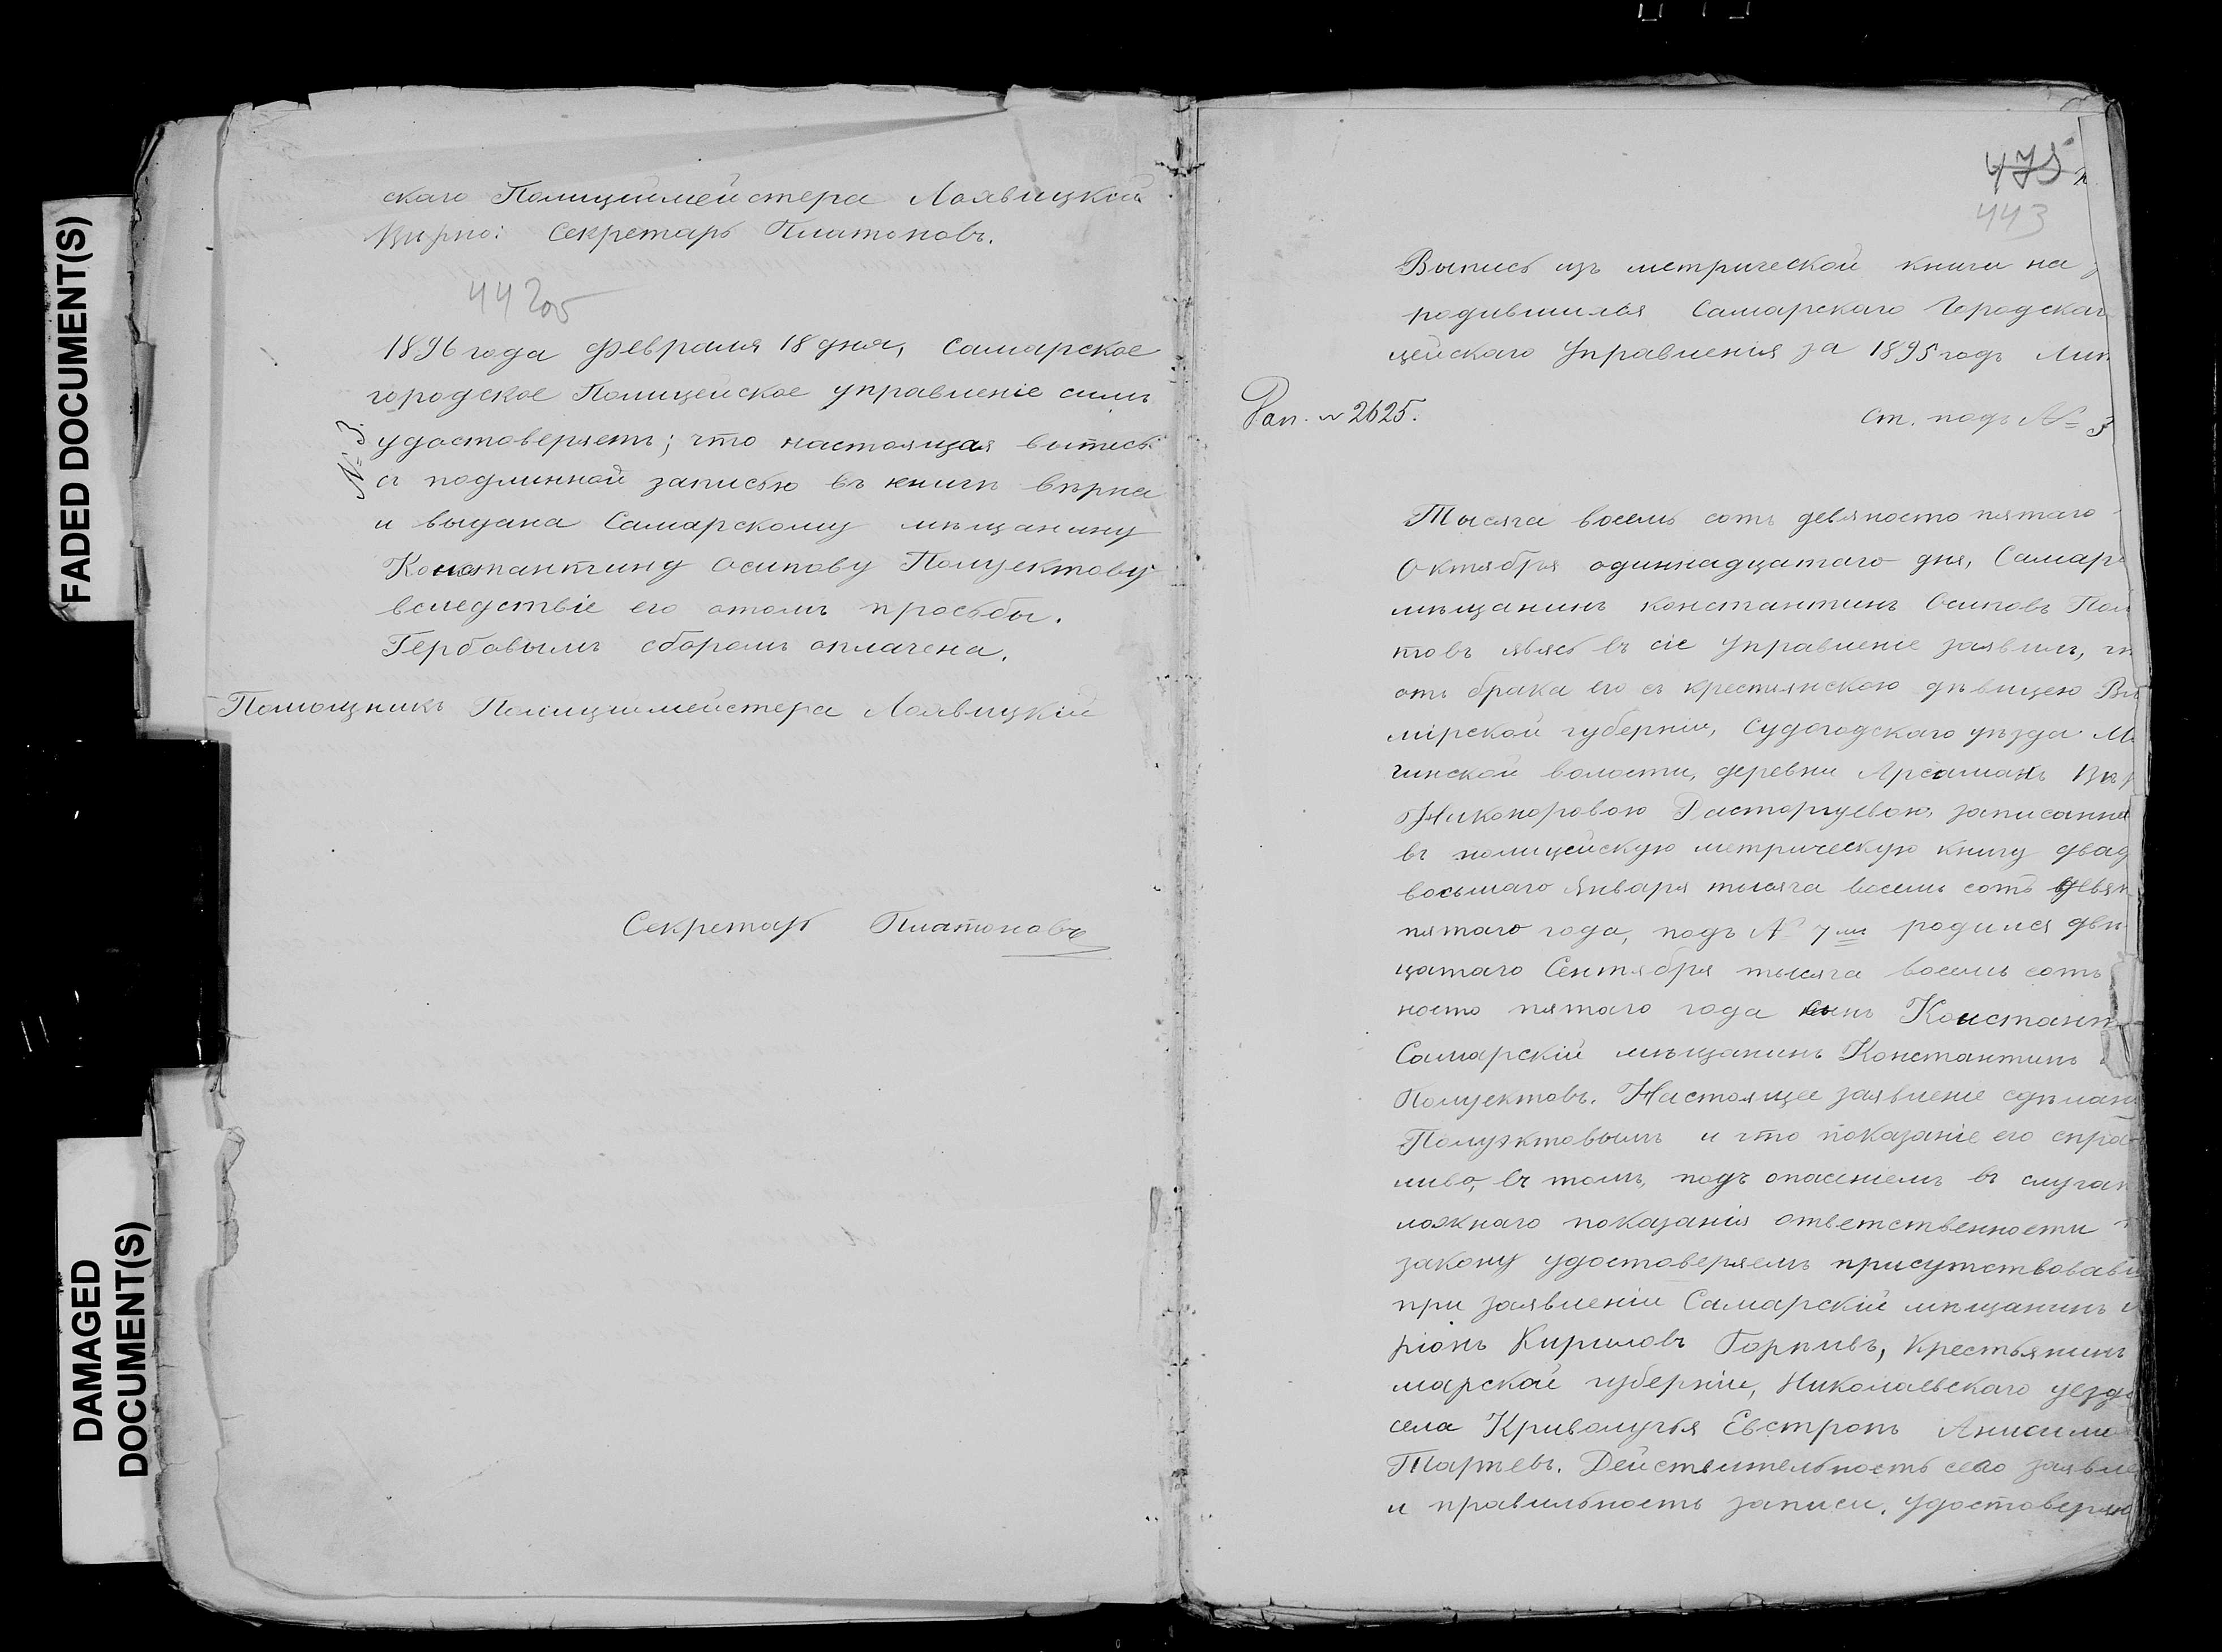 FADED DOCUMENT(S)
DAMAGED
DOCUMENT(S)
скаго Полициймейстера Лоявицкій
Вѣрно: Секретарь Платоновъ.
442об
1896 года февраля 18 дня, Самарское
городское Полицейское управленіе симъ
№ 3.
удостоверяетъ; что настоящая выпись
съ подлинной записью въ книгѣ вѣрна
и выдана Самарскому мѣщанину
Константину Осипову Полуектову
вследствіе его о томъ просьбы.
Гербовымъ сборомъ оплачена.
Помощникъ Полициймейстера Лоявицкій
Секретарь Платоновъ
475
443
Выпись изъ метрической книги на
родившихся Самарскаго Городскаг
цейскаго Управленія за 1895 годъ Лит
Рап. № 2625.
ст. подъ № 3
Тысяча восемь сотъ девяносто пятаго
Октября одиннадцатаго дня, Самар
мѣщанинъ Константинъ Осиповъ Пол
ктовъ явясь въ сіе Управленіе заявилъ, чт
отъ брака его съ крестьянскою дѣвицею Вл
мірской губерніи, Судогодскаго уѣзда М
чинской волости, деревни Арсамакъ Вѣр
Никоноровою Расторгуевою, записанна
въ полицейскую метрическую книгу двад
восьмаго Января тысяча восемь сотъ девян
пятаго года, подъ № 7мъ родился два
цатаго Сентября тысяча восемь сотъ
носто пятаго года сынъ Констант
Самарскій мѣщанинъ Константинъ
Полуектовъ. Настоящее заявленіе сдѣлан
Полуэктовымъ и что показаніе его спра
ливо, въ томъ, подъ опасеніемъ въ случаѣ
ложнаго показанія ответственности п
закону удостоверяемъ присутствовавш
при заявленіи Самарскій мѣщанинъ
ріонъ Кириловъ Горпивъ, Крестьянинъ
марской губерніи, Николаевскаго уезда
села Криволучья Евстропъ Анисимо
Тартевъ. Действительность сего заявле
и правильность записи, удостоверяю